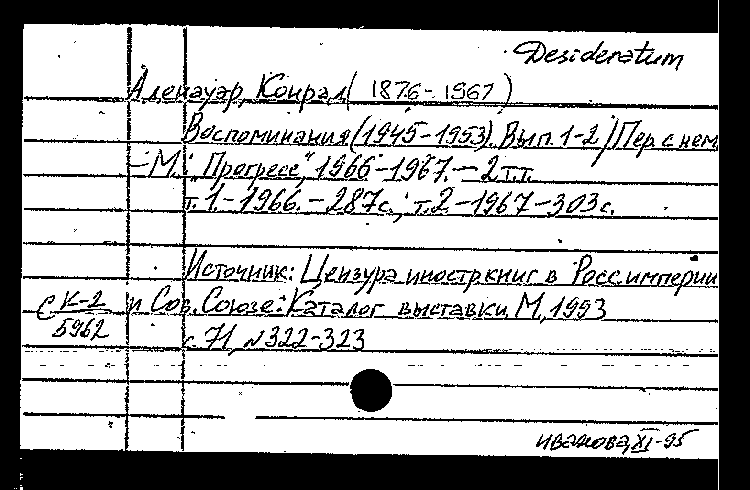 Desideratum
Аденауэр, Конрад ( 1876 - 1967 )
Воспоминания (1945-1953). Вып. 1-2 / Пер. с нем.
- М.: „Прогресс", 1966-1967. - 2 т.т.
т. 1. - 1966. - 287 с.; т. 2 - 1967 - 303 с.
Источник: Цензура иностр книг в Росс. империи
и Сов. Союзе: Каталог выставки. М, 1993
с К-2
5962
с. 71, № 322-323
Иванова, XI-95